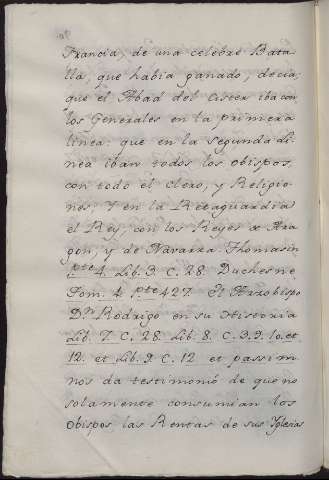 Francia, de una celebre Bata
lla, que habia ganado, decia,
que el Abad del Cister iba con
los Generales en la primera
linea: que en la segunda li
nea iban todos los obispos
con todo el clero, y Religio
nes: Y en la Retaguardia
el Rey, con los Reyes de Ara
gon, y de Navarra. Thomasin
pte 4. Lib. 3. C. 28. Duchesne
Tom. 4. pte 427. El Arzobispo
Dn Rodrigo en su Historia
Lib. 7. C. 28. Lib. 8. C. 3. 9. 10. et
12. et Lib. 9. C. 12 et passim
nos da testimonió de que no
solamente consumian los
obispos las Rentas de sus Yglesias